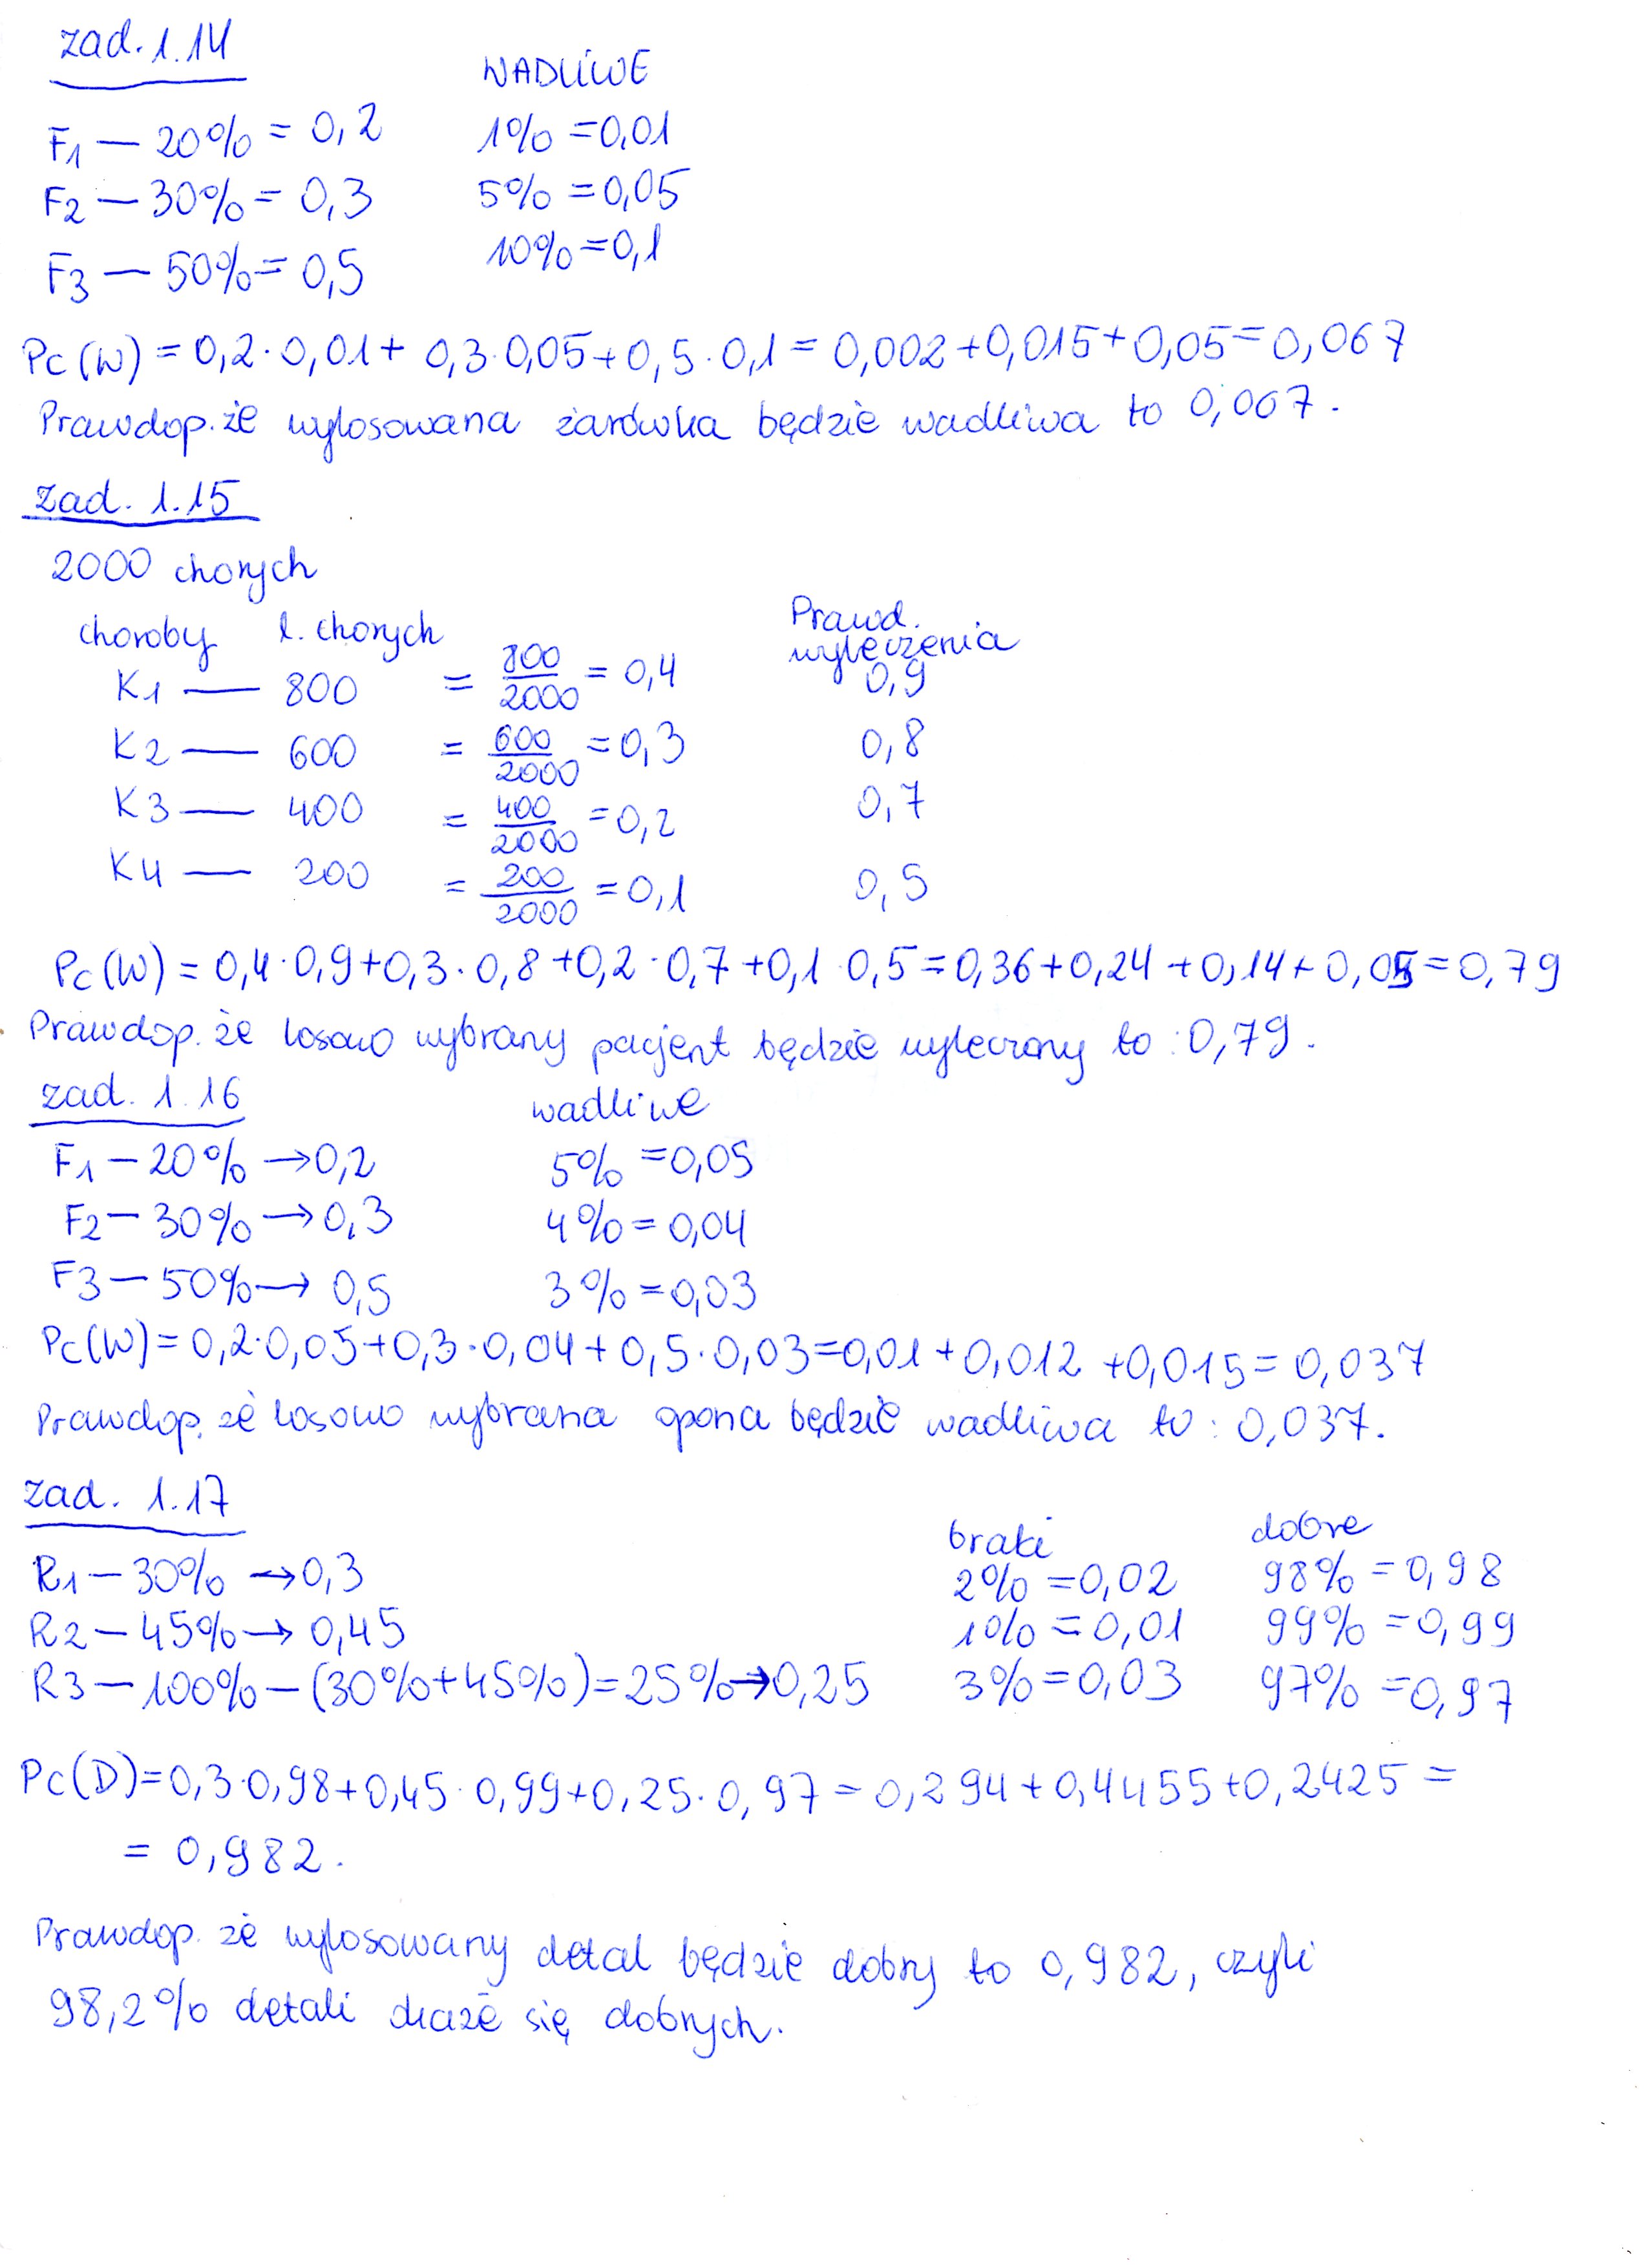 zad. 1.14
WADLIWE
F1 — 20% = 0,2 1% = 0,01
F2 — 30% = 0,3 5% = 0,05
F3 — 50% = 0,5 10% = 0,1
Pc(W) = 0,2 · 0,01 + 0,3 · 0,05 + 0,5 · 0,1 = 0,002 + 0,015 + 0,05 = 0,067
Prawdop. że wylosowana żarówka będzie wadliwa to 0,067.
zad. 1.15
2000 chorych
choroby l. chorych Prawd. wyleczenia
K1 — 800 = 800/2000 = 0,4 0,9
K2 — 600 = 600/2000 = 0,3 0,8
K3 — 400 = 400/2000 = 0,2 0,7
K4 — 200 = 200/2000 = 0,1 0,5
Pc(W) = 0,4 · 0,9 + 0,3 · 0,8 + 0,2 · 0,7 + 0,1 · 0,5 = 0,36 + 0,24 + 0,14 + 0,05 = 0,79
Prawdop. że losowo wybrany pacjent będzie wyleczony to : 0,79.
zad. 1.16 wadliwe
F1 — 20% → 0,2 5% = 0,05
F2 — 30% → 0,3 4% = 0,04
F3 — 50% → 0,5 3% = 0,03
Pc(W) = 0,2 · 0,05 + 0,3 · 0,04 + 0,5 · 0,03 = 0,01 + 0,012 + 0,015 = 0,037
Prawdop. że losowo wybrana opona będzie wadliwa to : 0,037.
zad. 1.17
braki dobre
R1 — 30% → 0,3 2% = 0,02 98% = 0,98
R2 — 45% → 0,45 1% = 0,01 99% = 0,99
R3 — 100% — (30% + 45%) = 25% → 0,25 3% = 0,03 97% = 0,97
Pc(D) = 0,3 · 0,98 + 0,45 · 0,99 + 0,25 · 0,97 = 0,294 + 0,4455 + 0,2425 =
= 0,982.
Prawdop. że wylosowany detal będzie dobry to 0,982, czyli
98,2% detali okaże się dobrych.